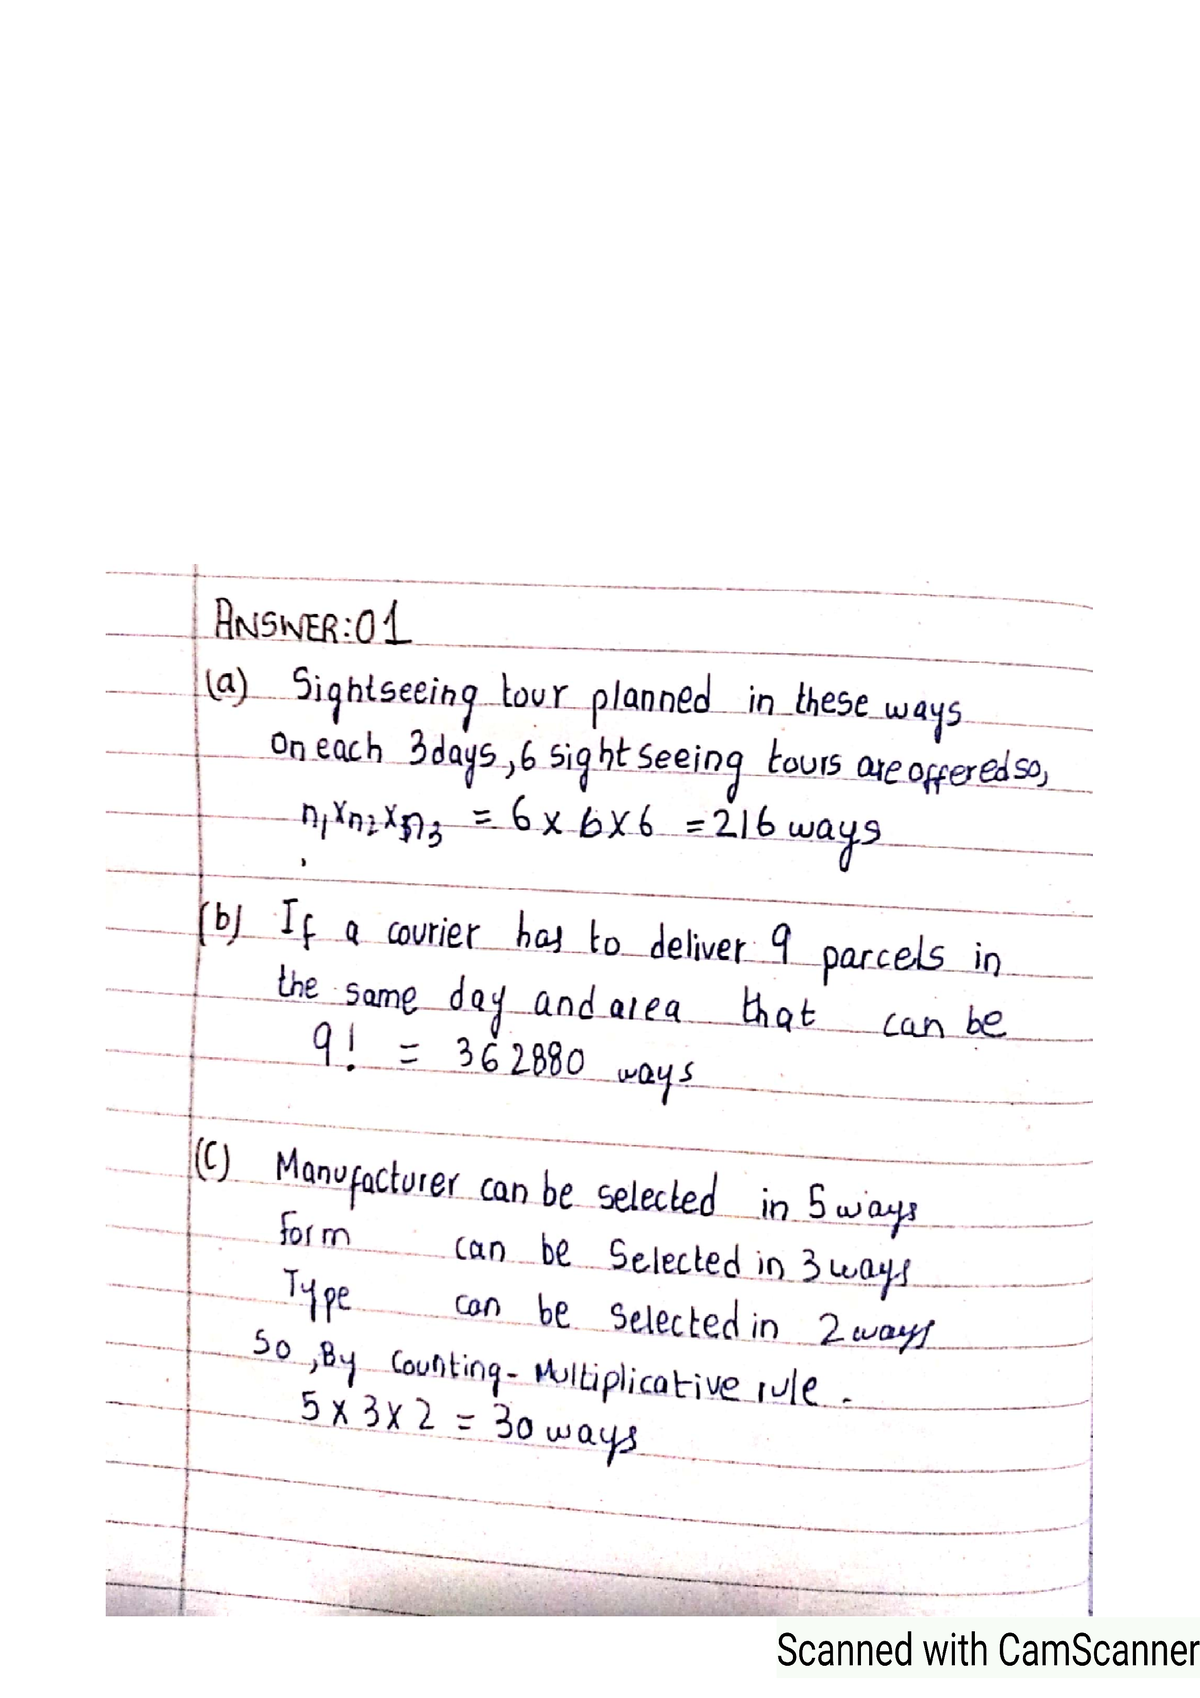 ANSWER:01
(a) Sightseeing tour planned in these ways
on each 3days, 6 sight seeing tours are offered so,
n₁xn₂xn₃ = 6 x 6 x 6 = 216 ways
(b) If a courier has to deliver 9 parcels in
the same day and area that can be
9! = 362880 ways
(C) Manufacturer can be selected in 5 ways
form can be Selected in 3 ways
Type can be Selected in 2 ways
So, By Counting- Multiplicative rule.
5 x 3 x 2 = 30 ways
Scanned with CamScanner